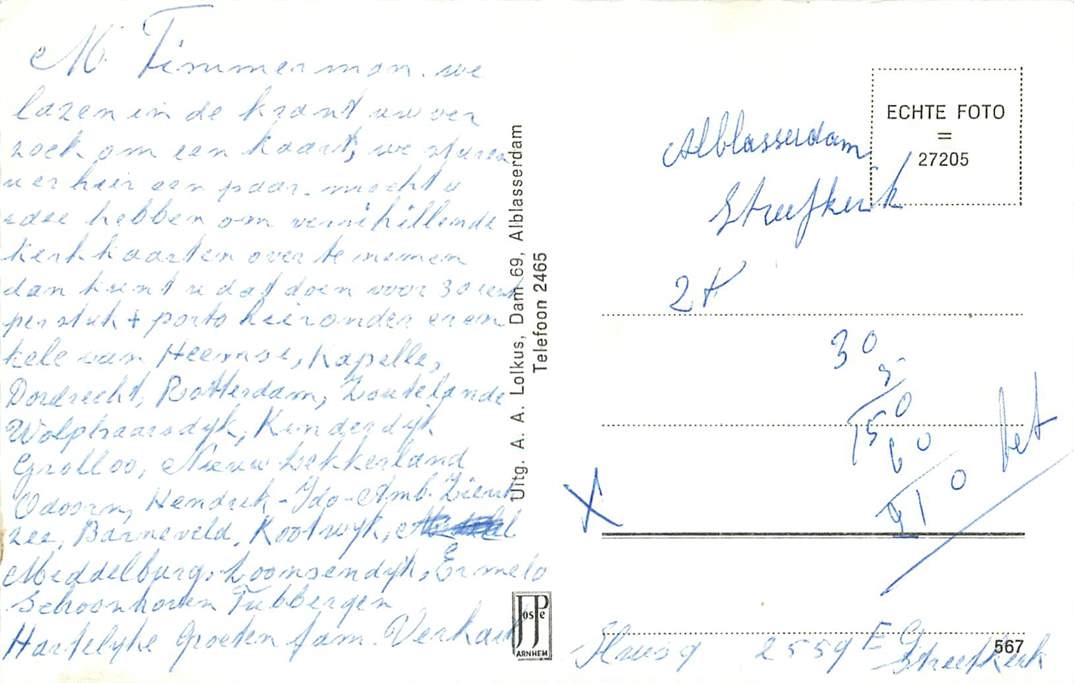 M. Timmerman. we
lazen in de krant uw ver
zoek om een kaart, we sturen
u er hier een paar. mocht u
idee hebben om verschillende
kerkkaarten over te nemen
dan kunt u dat doen voor 30 cent
per stuk + porto hieronder een en
kele van Heemse, Kapelle,
Dordrecht, Rotterdam, Zoutelande
Wolphaarsdijk, Kinderdijk
Grolloo, Nieuw Lekkerland
Odoorn, Hendrik-Ido-Amb. Zierik
zee, Barneveld, Kootwijk,
Middelburg, Loonsendijk, Ermelo
Schoonhoven Tubbergen
Hartelijke Groeten fam. Verhaar
Uitg. A. A. Lolkus, Dam 69, Alblasserdam
Telefoon 2465
JosPe
ARNHEM
ECHTE FOTO
=
27205
Alblasserdam
Streefkerk
2x
30
5
150
60
210 bet
X
2559 E
Streefkerk
567